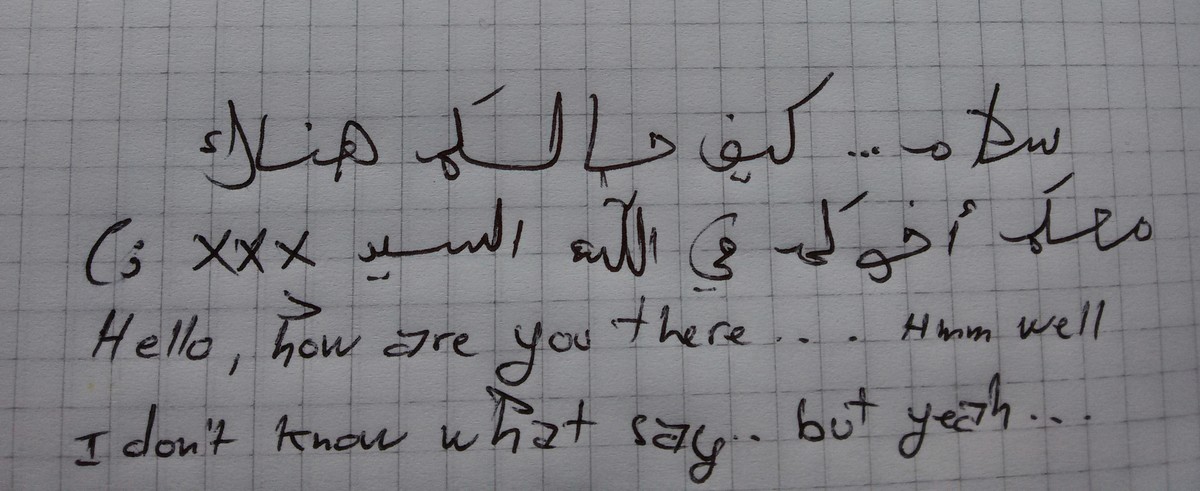 سلام ... كيف حالكم هناك
معكم أخوكم في الله السيد xxx ;)
Hello, how are you there .... Hmm well
I don't know what say.. but yeah...